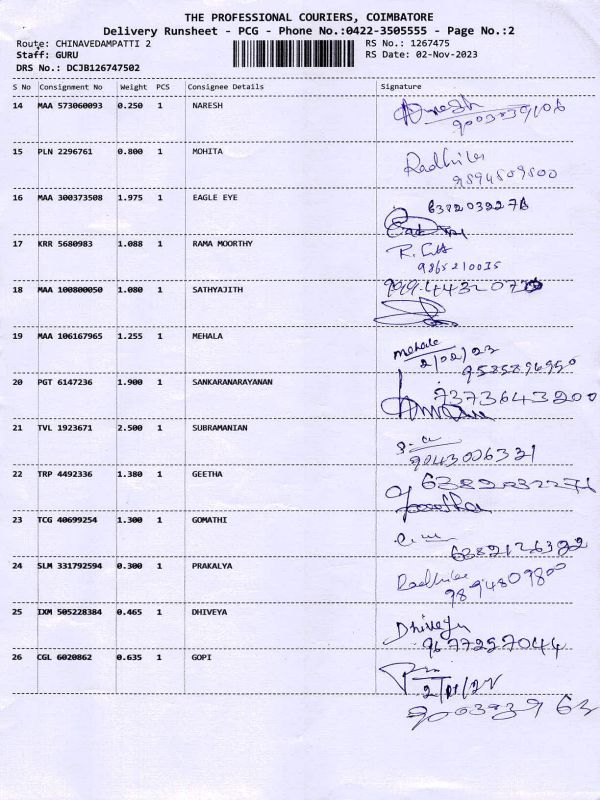 THE PROFESSIONAL COURIERS, COIMBATORE
Delivery Runsheet - PCG - Phone No.:0422-3505555 - Page No.:2
Route: CHINAVEDAMPATTI 2 RS No.: 1267475
Staff: GURU RS Date: 02-Nov-2023
DRS No.: DCJB126747502
S No Consignment No Weight PCS Consignee Details Signature
14 MAA 573060093 0.250 1 NARESH
15 PLN 2296761 0.800 1 MOHITA
9894809800
16 MAA 300373508 1.975 1 EAGLE EYE
17 KRR 5680983 1.088 1 RAMA MOORTHY
9865210015
18 MAA 100800050 1.080 1 SATHYAJITH
19 MAA 106167965 1.255 1 MEHALA
mehala
2/02/23
9585896950
20 PGT 6147236 1.900 1 SANKARANARAYANAN
7373643200
21 TVL 1923671 2.500 1 SUBRAMANIAN
9043006321
22 TRP 4492336 1.380 1 GEETHA
23 TCG 40699254 1.300 1 GOMATHI
24 SLM 331792594 0.300 1 PRAKALYA
9894809800
25 IXM 505228384 0.465 1 DHIVEYA
Dhiveya
9677297044
26 CGL 6020862 0.635 1 GOPI